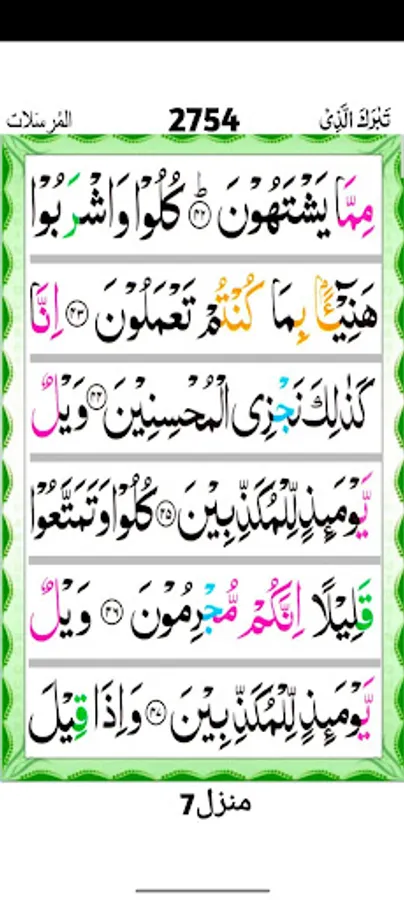 تَبٰرَكَ الَّذِیْ 2754 المُرسلات
مِمَّا یَشْتَهُوْنَ ؕ۝۴۲ كُلُوْا وَاشْرَبُوْا
هَنِیْٓـــًٔۢا بِمَا كُنْتُمْ تَعْمَلُوْنَ ۝۴۳ اِنَّا
كَذٰلِكَ نَجْزِی الْمُحْسِنِیْنَ ۝۴۴ وَیْلٌ
یَّوْمَىِٕذٍ لِّلْمُكَذِّبِیْنَ ۝۴۵ كُلُوْا وَتَمَتَّعُوْا
قَلِیْلًا اِنَّكُمْ مُّجْرِمُوْنَ ۝۴۶ وَیْلٌ
یَّوْمَىِٕذٍ لِّلْمُكَذِّبِیْنَ ۝۴۷ وَاِذَا قِیْلَ
منزل 7